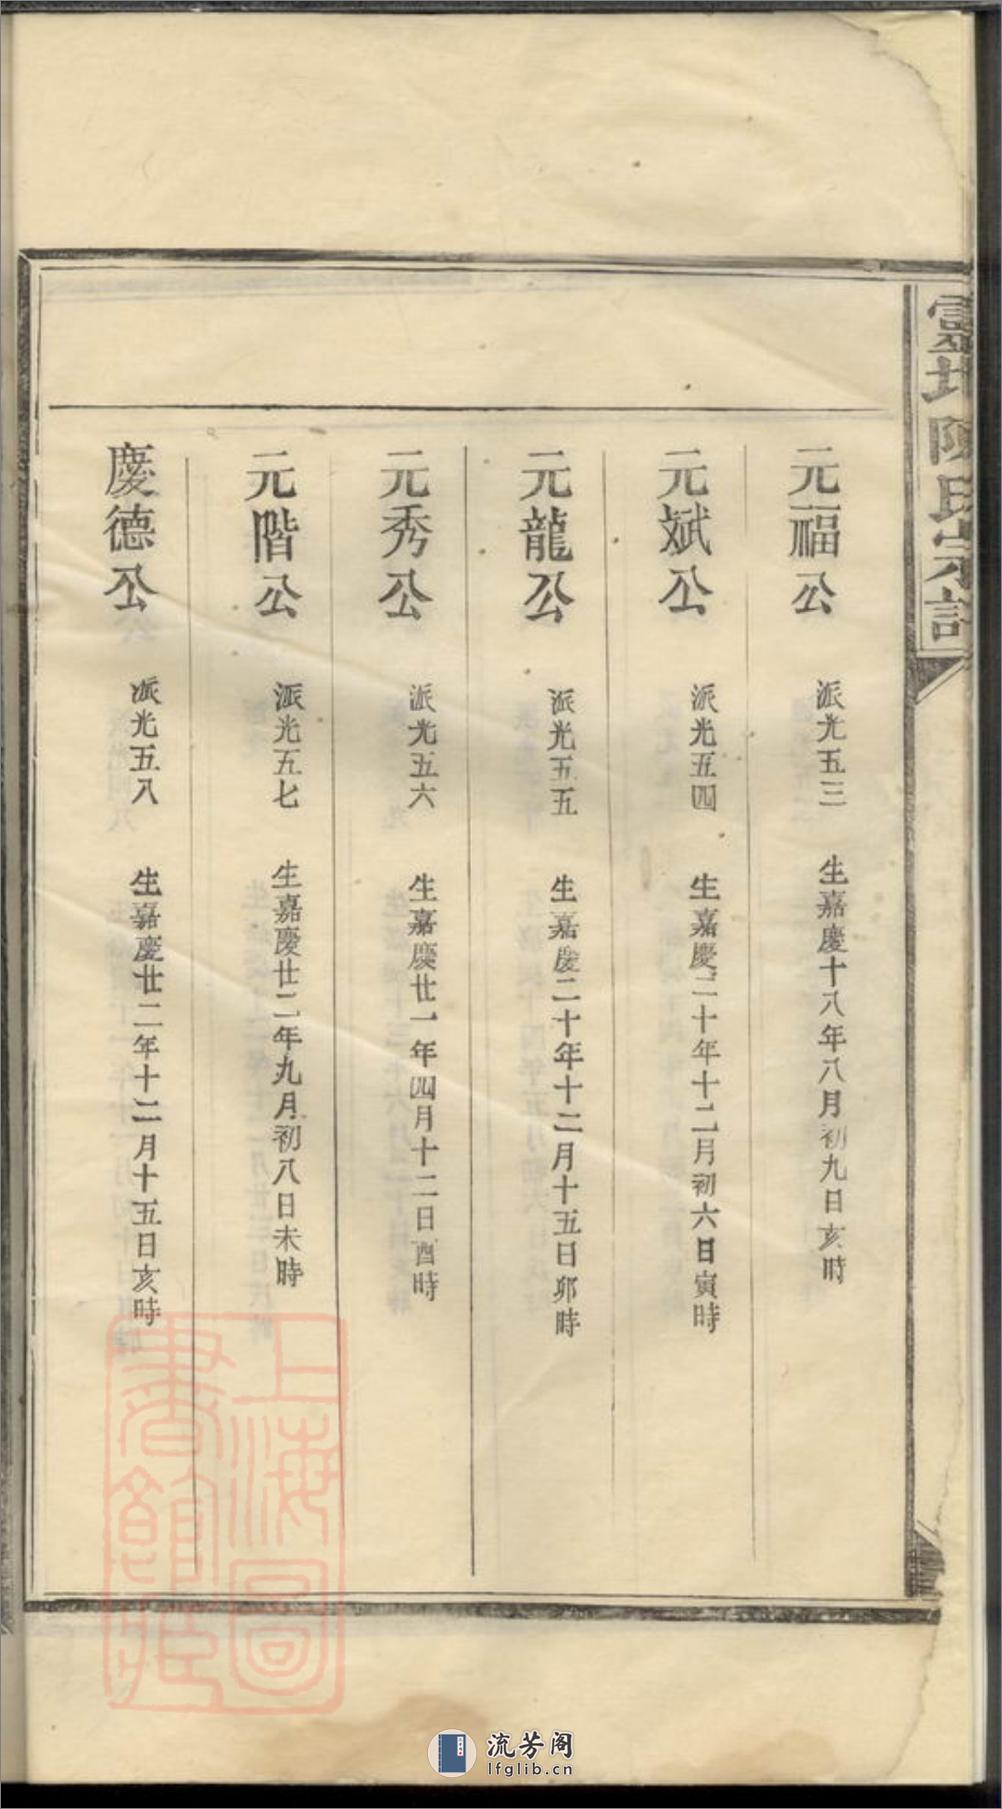 靈圤陳氏宗譜
元福公　派光五三　生嘉慶十八年八月初九日亥時
元斌公　派光五四　生嘉慶二十年十二月初六日寅時
元龍公　派光五五　生嘉慶二十年十二月十五日卯時
元秀公　派光五六　生嘉慶廿一年四月十二日酉時
元階公　派光五七　生嘉慶廿二年九月初八日未時
慶德公　派光五八　生嘉慶廿二年十二月十五日亥時
上海圖
書館藏
流芳阁
lfglib.cn